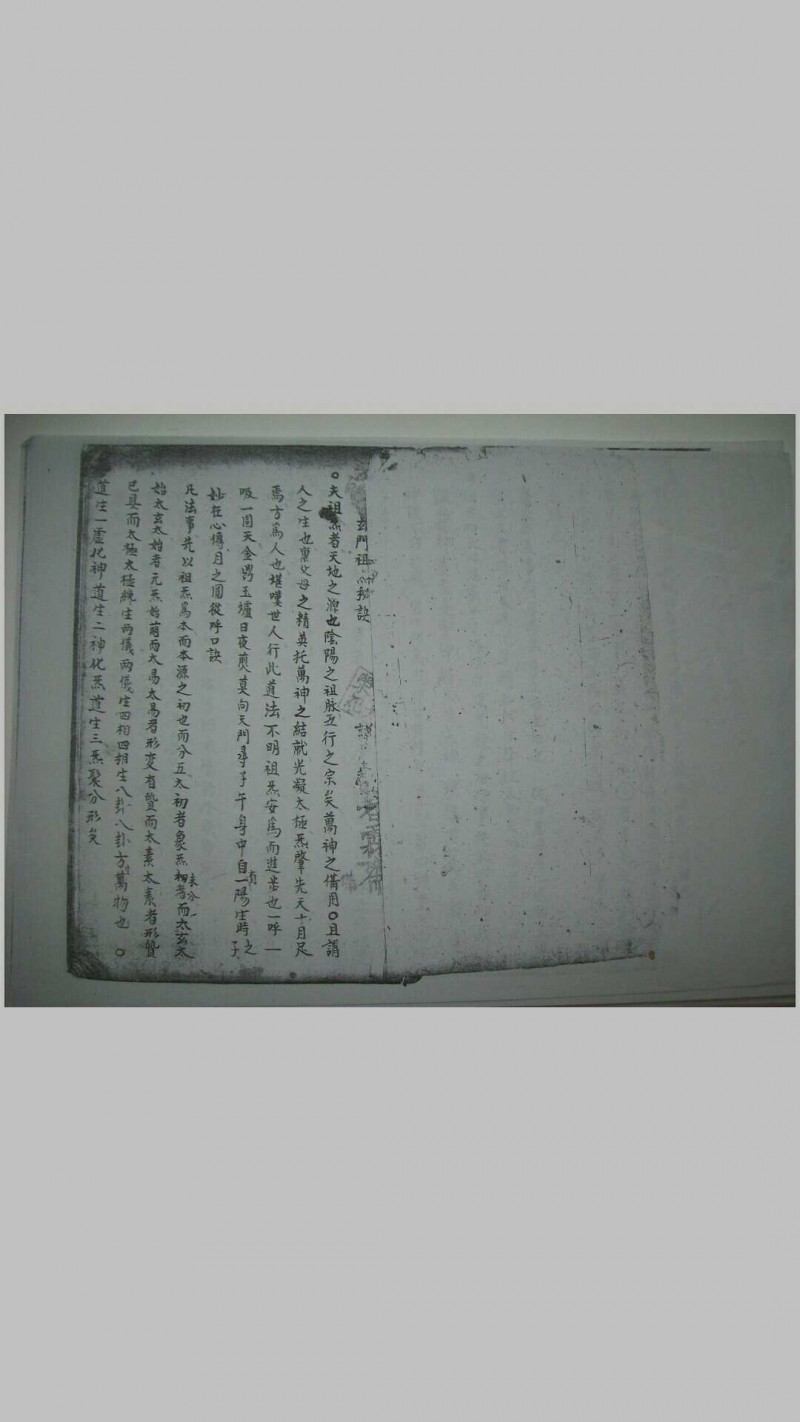 玄門祖炁秘訣
○夫祖炁者天地之源也陰陽之祖脉五行之宗矣萬神之備用○且謂
人之生也禀父母之精英托萬神之結就光凝太極炁肇先天十月足
焉方為人也堪嘆世人行此道法不明祖炁安為而進步也一呼一
吸一周天金鼎玉爐日夜煎莫向天門尋子午身中自有一陽生時之子
妙在心傳月之圓從呼口訣
凡法事先以祖炁為本而本源之初也而分五太初者象炁初者未分而太玄太
始太玄太始者元炁始萌而太易太易者形变有質而太素太素者形質
已具而太極太極純生两儀两儀生四相四相生八卦八卦方生萬物也○
道生一虛化神道生二神化炁道生三炁聚分形矣